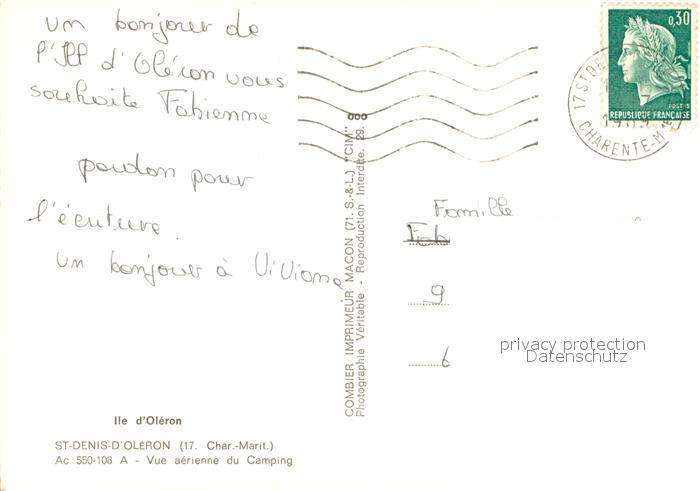 un bonjour de
l'Ile d'Oléron vous
souhaite Fabienne
pardon pour
l'écriture.
un bonjour à Viviane
Ile d'Oléron
ST-DENIS-D'OLÉRON (17. Char.-Marit.)
Ac 550-108 A - Vue aérienne du Camping
COMBIER IMPRIMEUR MACON (71. S.-&-L.) "CIM"
Photographie Véritable - Reproduction Interdite. 29.
0,30
POSTES
REPUBLIQUE FRANÇAISE
17 ST DE
CHARENTE-M
Famille
Fab
9
6
privacy protection
Datenschutz